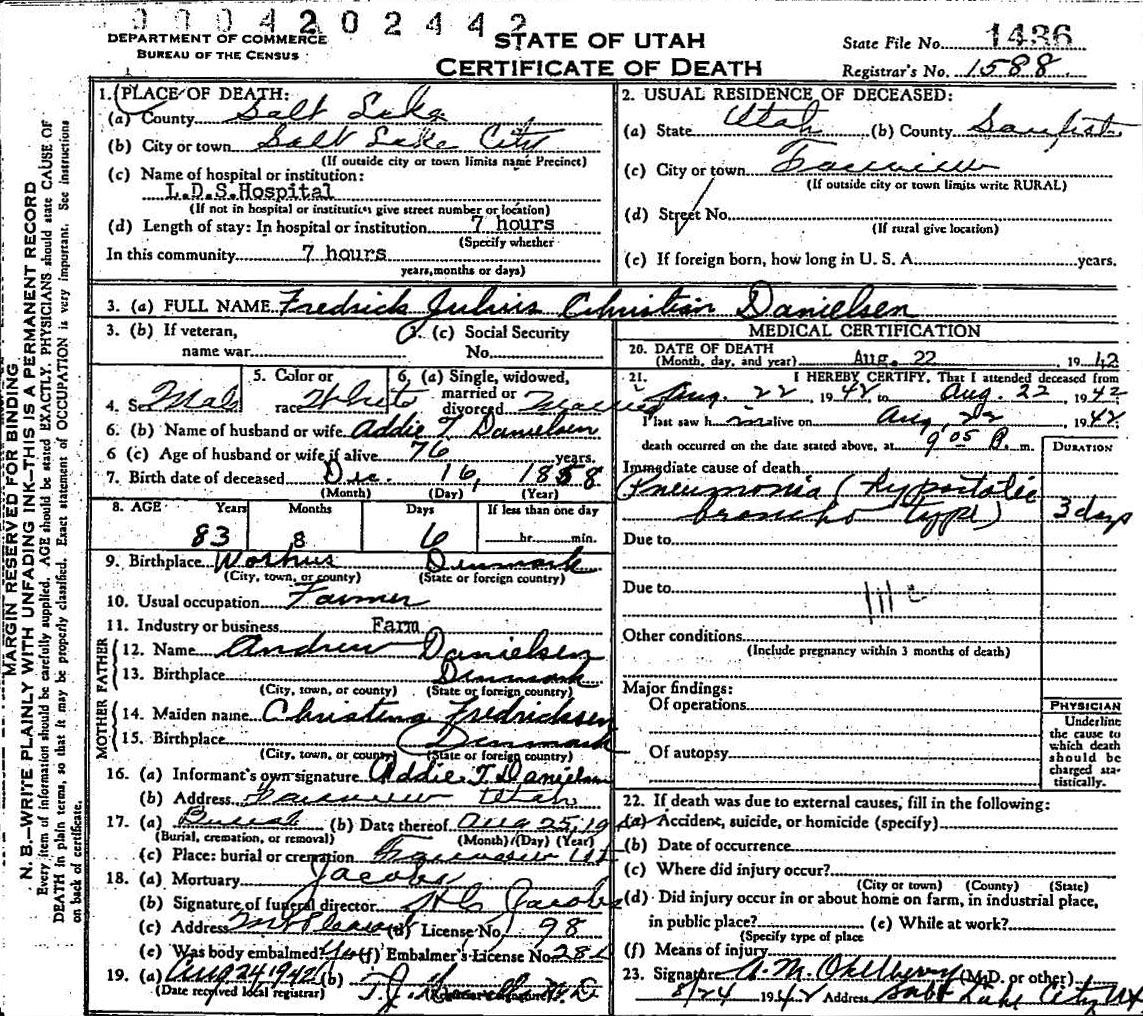 0004202442
DEPARTMENT OF COMMERCE
BUREAU OF THE CENSUS
STATE OF UTAH
CERTIFICATE OF DEATH
State File No. 1436
Registrar's No. 1588
MARGIN RESERVED FOR BINDING
N. B.—WRITE PLAINLY WITH UNFADING INK—THIS IS A PERMANENT RECORD
Every item of information should be carefully supplied. AGE should be stated EXACTLY. PHYSICIANS should state CAUSE OF
DEATH in plain terms, so that it may be properly classified. Exact statement of OCCUPATION is very important. See instructions
on back of certificate.
1. PLACE OF DEATH:
(a) County Salt Lake
(b) City or town Salt Lake City
(If outside city or town limits name Precinct)
(c) Name of hospital or institution:
L.D.S. Hospital
(If not in hospital or institution give street number or location)
(d) Length of stay: In hospital or institution 7 hours
(Specify whether
In this community 7 hours
years, months or days)
2. USUAL RESIDENCE OF DECEASED:
(a) State Utah (b) County Sanpete
(c) City or town Fairview
(If outside city or town limits write RURAL)
(d) Street No.
(If rural give location)
(e) If foreign born, how long in U. S. A. years.
3. (a) FULL NAME Fredrick Julius Christian Danielsen
3. (b) If veteran,
name war
(c) Social Security
No.
4. Sex Male
5. Color or
race White
6. (a) Single, widowed,
married or
divorced Married
6. (b) Name of husband or wife Addie T Danielsen
6 (c) Age of husband or wife if alive 76 years.
7. Birth date of deceased Dec. 16, 1858
(Month) (Day) (Year)
8. AGE Years Months Days If less than one day
83 8 6 hr. min.
9. Birthplace Denmark
(City, town, or county) (State or foreign country)
10. Usual occupation Farmer
11. Industry or business Farm
FATHER
12. Name Andrew Danielsen
13. Birthplace Denmark
(City, town, or county) (State or foreign country)
MOTHER
14. Maiden name Christina Fredricksen
15. Birthplace Denmark
(City, town, or county) (State or foreign country)
16. (a) Informant's own signature Addie T. Danielsen
(b) Address Fairview Utah
17. (a) Burial (b) Date thereof Aug 25, 19
(Burial, cremation, or removal) (Month) (Day) (Year)
(c) Place: burial or cremation Fairview Ut
18. (a) Mortuary Jacobs
(b) Signature of funeral director Jacobs
(c) Address Mt Pleasant (d) License No. 98
(e) Was body embalmed? Yes (f) Embalmer's License No. 281
19. (a) Aug 24 1942 (b)
(Date received local registrar) (Registrar's signature)
MEDICAL CERTIFICATION
20. DATE OF DEATH
(Month, day, and year) Aug. 22 1942
21. I HEREBY CERTIFY, That I attended deceased from
Aug. 22, 1942 to Aug. 22 1942
I last saw him alive on Aug, 22 1942
death occurred on the date stated above, at 9 05 P. m.
DURATION
Immediate cause of death
Pneumonia (hypostatic
broncho type) 3 days
Due to
Due to
Other conditions
(Include pregnancy within 3 months of death)
Major findings:
Of operations
Of autopsy
PHYSICIAN
Underline
the cause to
which death
should be
charged sta-
tistically.
22. If death was due to external causes, fill in the following:
(a) Accident, suicide, or homicide (specify)
(b) Date of occurrence
(c) Where did injury occur?
(City or town) (County) (State)
(d) Did injury occur in or about home on farm, in industrial place,
in public place? (e) While at work?
(Specify type of place
(f) Means of injury
23. Signature A. M. (M.D. or other)
8/24 1942 Address Salt Lake City Ut